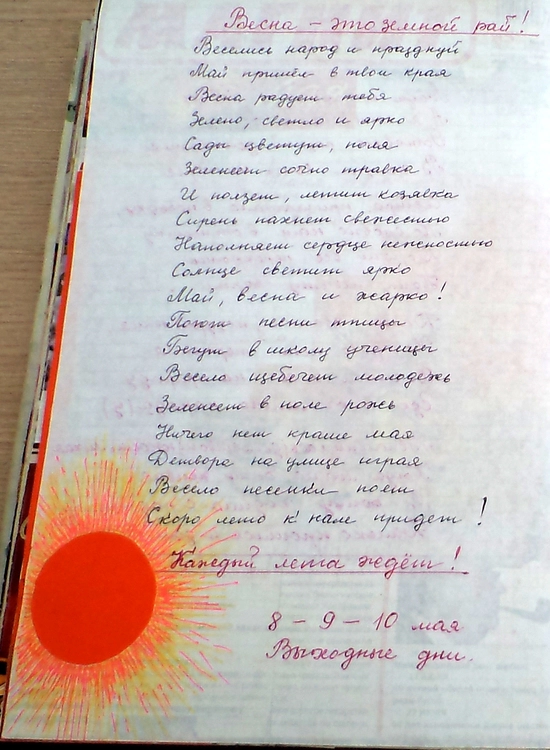 Весна – это земной рай!
Веселись народ и празднуй
Май пришёл в твои края
Весна радует тебя
Зелено, светло и ярко
Сады цветут, поля
Зеленеет сочно травка
И ползет, летит козявка
Сирень пахнет свежестью
Наполняет сердце нежностью
Солнце светит ярко
Май, весна и жарко!
Поют песни птицы
Бегут в школу ученицы
Весело щебечет молодежь
Зеленеет в поле рожь
Ничего нет краше мая
Детвора на улице играя
Весело песенки поет
Скоро лето к нам придет!
Каждый лета ждёт!
8 – 9 – 10 мая
Выходные дни.